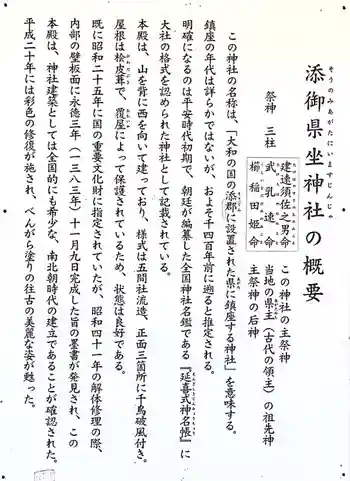 添御県坐神社の概要
そうのみあがたにいますじんじゃ
祭神 三柱
建速須佐之男命 この神社の主祭神
武乳速命 当地の県主(古代の領主)の祖先神
櫛稲田姫命 主祭神の后神
この神社の名称は、「大和の国の添郡に設置された県に鎮座する神社」を意味する。
鎮座の年代は詳らかではないが、およそ千四百年前に遡ると推定される。
明確になるのは平安時代初期で、朝廷が編纂した全国神社名鑑である『延喜式神名帳』に
大社の格式を認められた神社として記載されている。
本殿は、山を背に西を向いて建っており、様式は五間社流造、正面三箇所に千鳥破風付き。
屋根は桧皮葺で、覆屋によって保護されているため、状態は良好である。
既に昭和二十五年に国の重要文化財に指定されていたが、昭和四十一年の解体修理の際、
内部の壁板面に永徳三年(一三八三年)十一月九日完成した旨の墨書が発見され、この
本殿は、神社建築としては全国的にも希少な、南北朝時代の建立であることが確認された。
平成二十年には彩色の修復が施され、べんがら塗りの往古の美麗な姿が甦った。